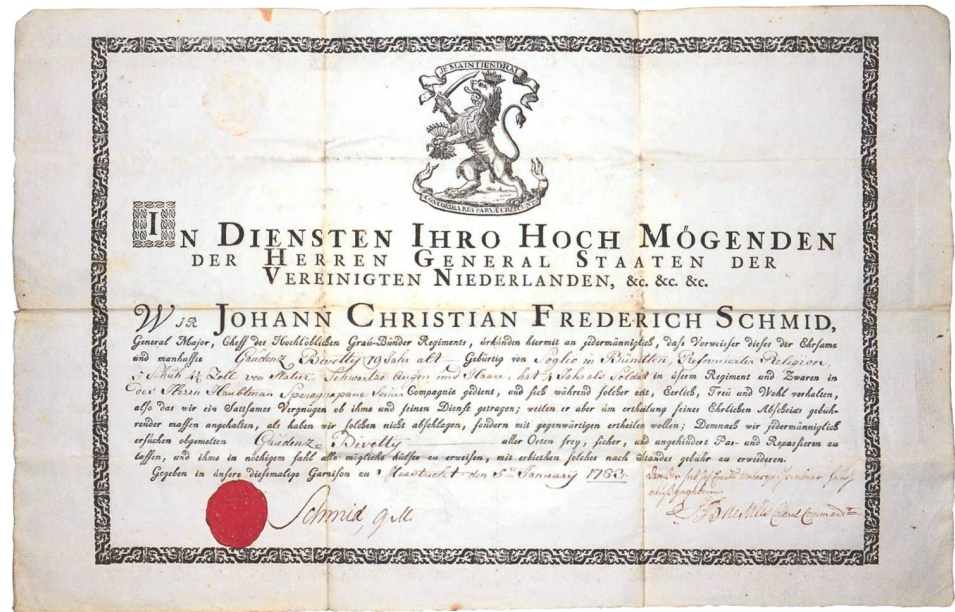 JE MAINTIENDRAI
CONCORDIA RES PARVÆ CRESCUNT
IN DIENSTEN IHRO HOCH MÖGENDEN
DER HERREN GENERAL STAATEN DER
VEREINIGTEN NIEDERLANDEN, &c. &c. &c.
WIR JOHANN CHRISTIAN FREDERICH SCHMID,
General Major, Cheff des Hochlöblichen Grau-Bünder Regiments, urkunden hiermit an jedermänniglich, dass Vorweiser dieses der Ehrsame
und manhaffte Gaudenz Bivetty 19 Jahr alt Gebürtig von Soglio in Bündten, Reformierter Religion,
5 Schub 4½ Zoll von Statur, Schwartze Augen und Haare, hat 4 Jahr als Soldat in üserm Regiment und Zwaren in
des Herrn Haubtman Compagnie gedient, und sich während solcher zeit, Eerlich, Treü und Wohl verhalten,
also das wir ein Sattsames Vergnügen ob ihme und seinen Dienst getragen; weilen er aber um ertheilung seines Ehrlichen Abscheids gebüh-
render massen angehalten, als haben wir solchen nicht abschlagen, sondern mit gegenwärtigen ertheilen wollen; Demnach wir jedermänniglich
ersuchen obgemelten Gaudenz Bivetty aller Orten frey, sicher, und ungehindert Pas- und Repassieren zu
lassen, und ihme in nöthigem fahl alle mögliche hülffe zu erweisen, mit erbiethen solches nach Standes gebühr zu erwideren.
Gegeben in unsere diesmalige Garnison zu Maastricht den 5ten January 1788
Schmid G.M.
Colonel Commandt